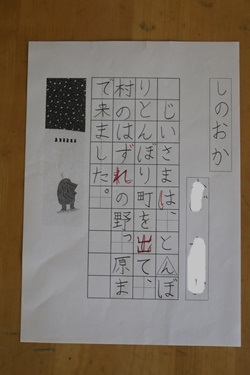 しのおか
じいさまは、とんぼ
りとんぼり町を出て、
村のはずれの野っ原ま
で来ました。